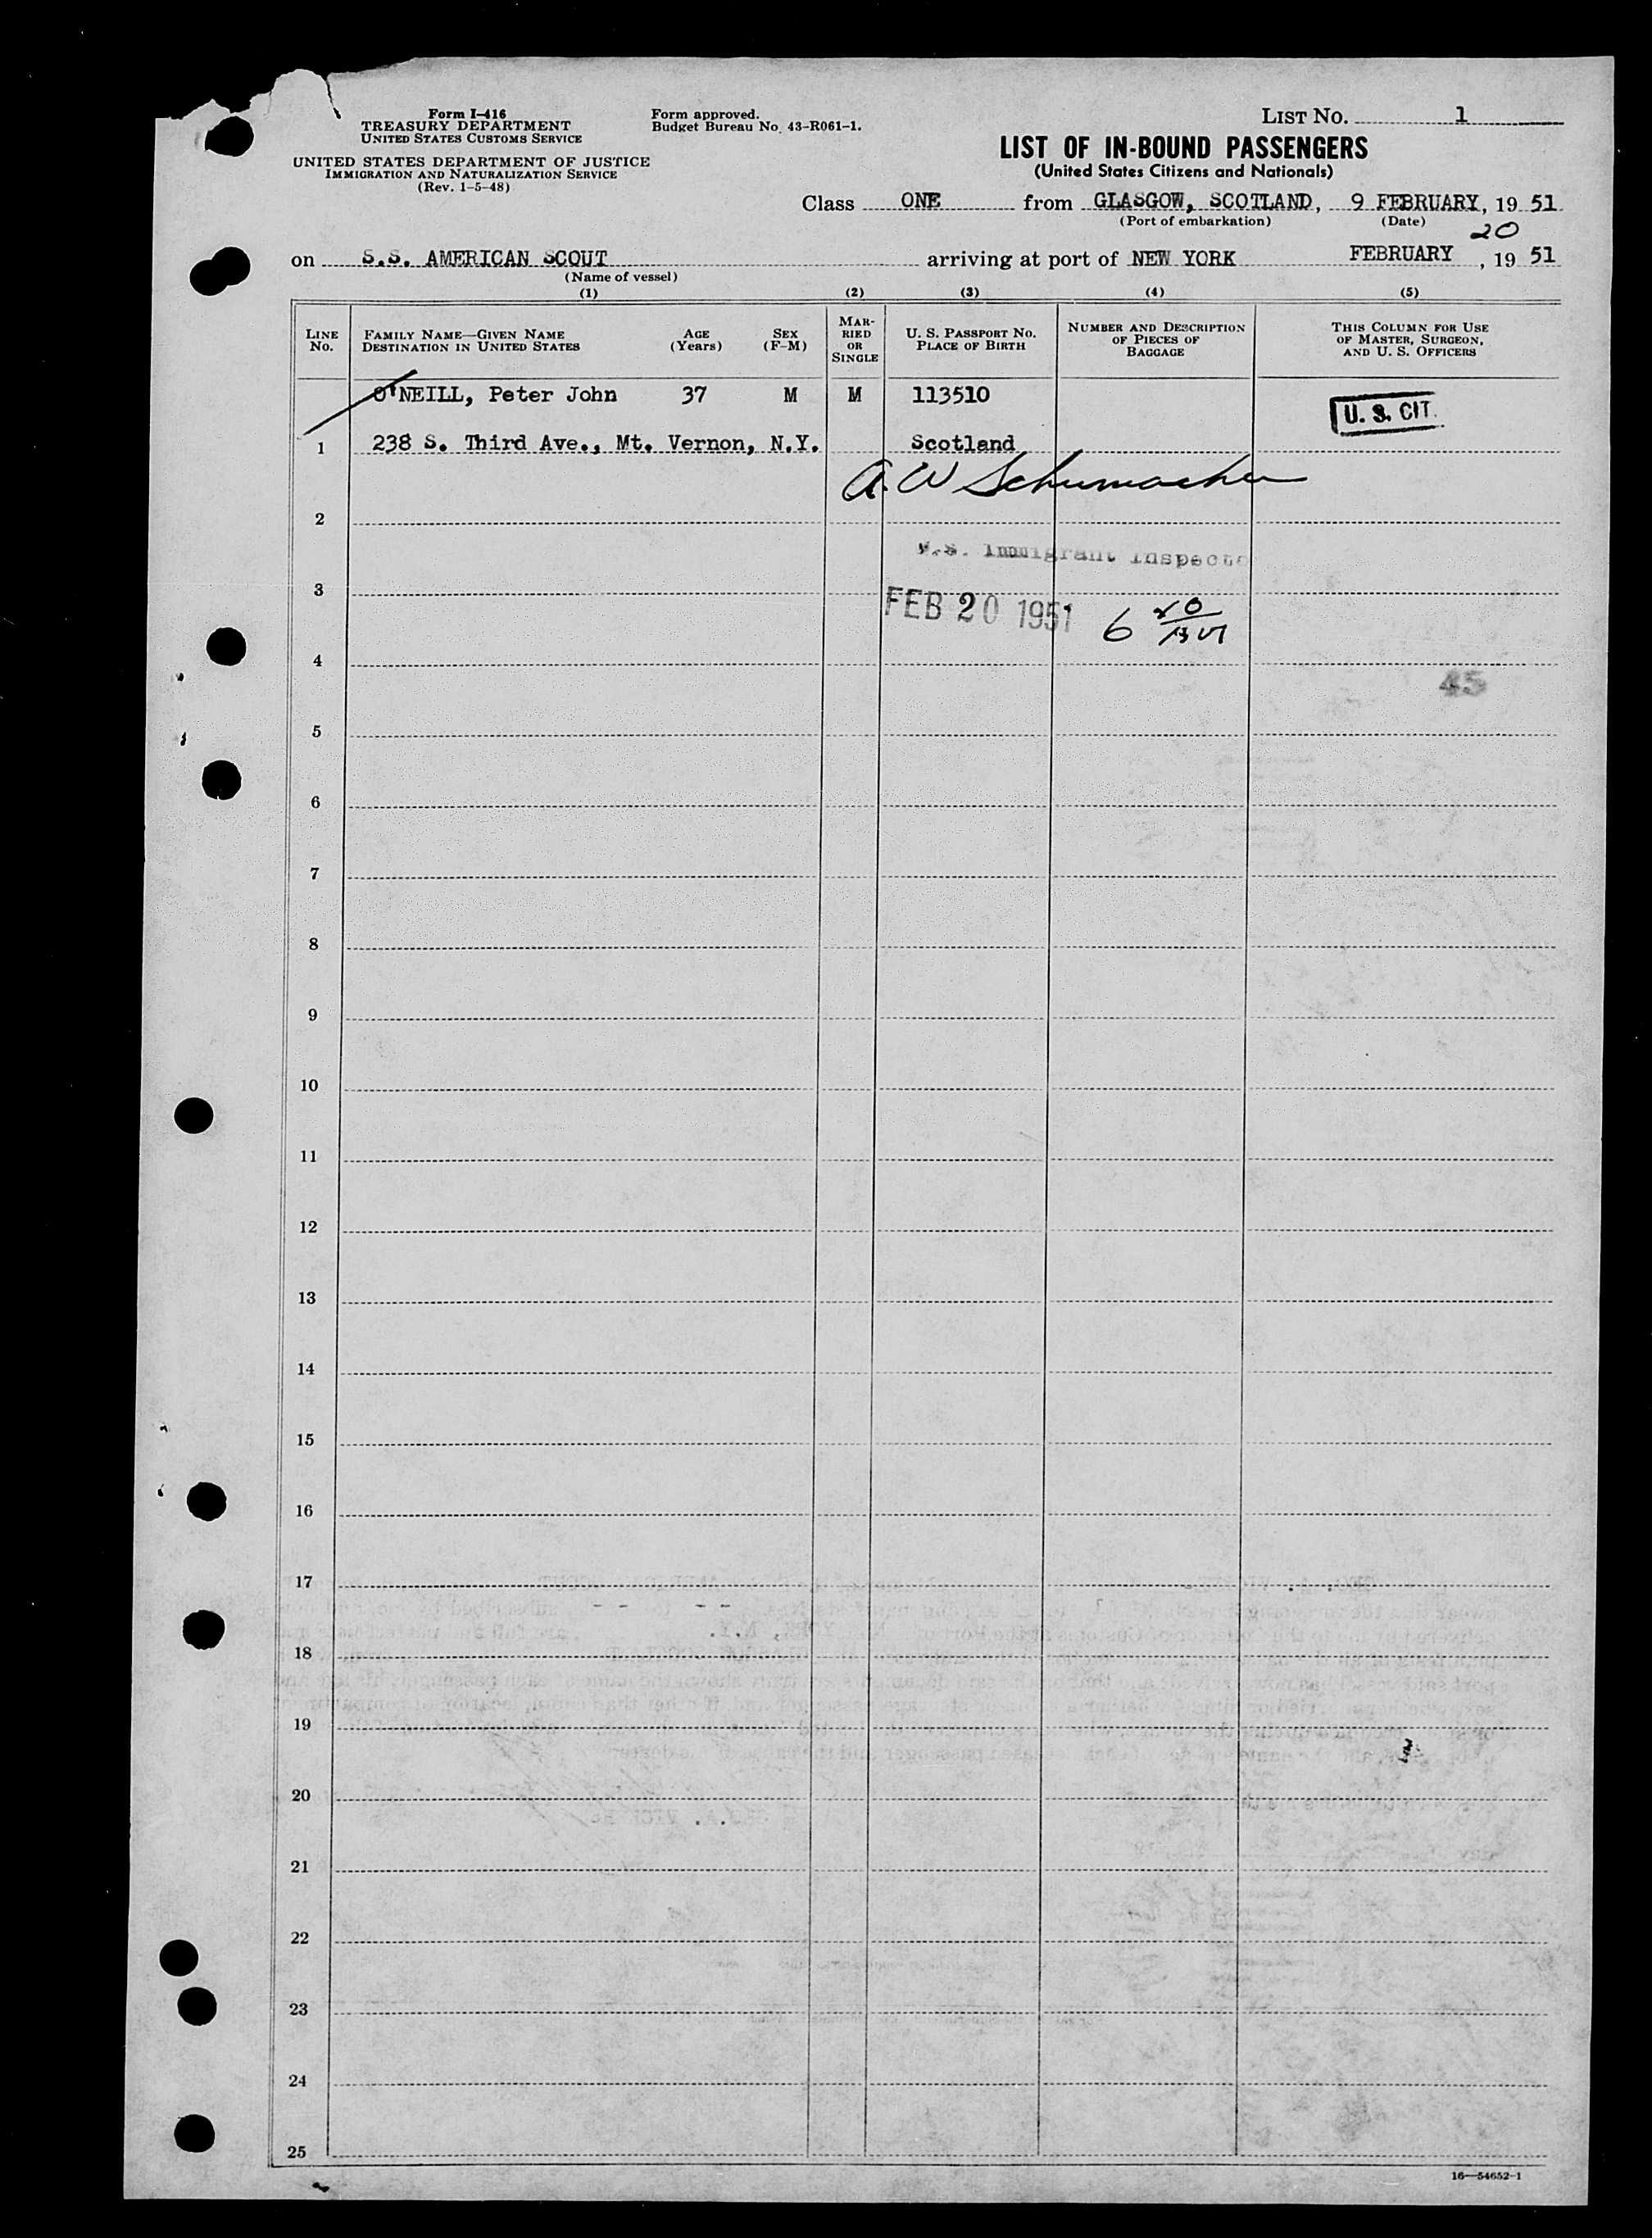 Form I-416
TREASURY DEPARTMENT
UNITED STATES CUSTOMS SERVICE
UNITED STATES DEPARTMENT OF JUSTICE
IMMIGRATION AND NATURALIZATION SERVICE
(Rev. 1-5-48)
Form approved.
Budget Bureau No. 43-R061-1.
LIST No. 1
LIST OF IN-BOUND PASSENGERS
(United States Citizens and Nationals)
Class ONE from GLASGOW, SCOTLAND, 9 FEBRUARY, 19 51
(Port of embarkation) (Date)
20
on S.S. AMERICAN SCOUT arriving at port of NEW YORK FEBRUARY , 19 51
(Name of vessel)
(1) (2) (3) (4) (5)
LINE No. FAMILY NAME—GIVEN NAME DESTINATION IN UNITED STATES AGE (Years) SEX (F-M) MARRIED OR SINGLE U. S. PASSPORT No. PLACE OF BIRTH NUMBER AND DESCRIPTION OF PIECES OF BAGGAGE THIS COLUMN FOR USE OF MASTER, SURGEON, AND U. S. OFFICERS
O'NEILL, Peter John 37 M M 113510 U. S. CIT.
1 238 S. Third Ave., Mt. Vernon, N.Y. Scotland
A. W Schumacher
2
U.S. Immigrant Inspecto
3
FEB 20 1951 6
4
45
5
6
7
8
9
10
11
12
13
14
15
16
17
18
19
20
21
22
23
24
25
16—54652-1